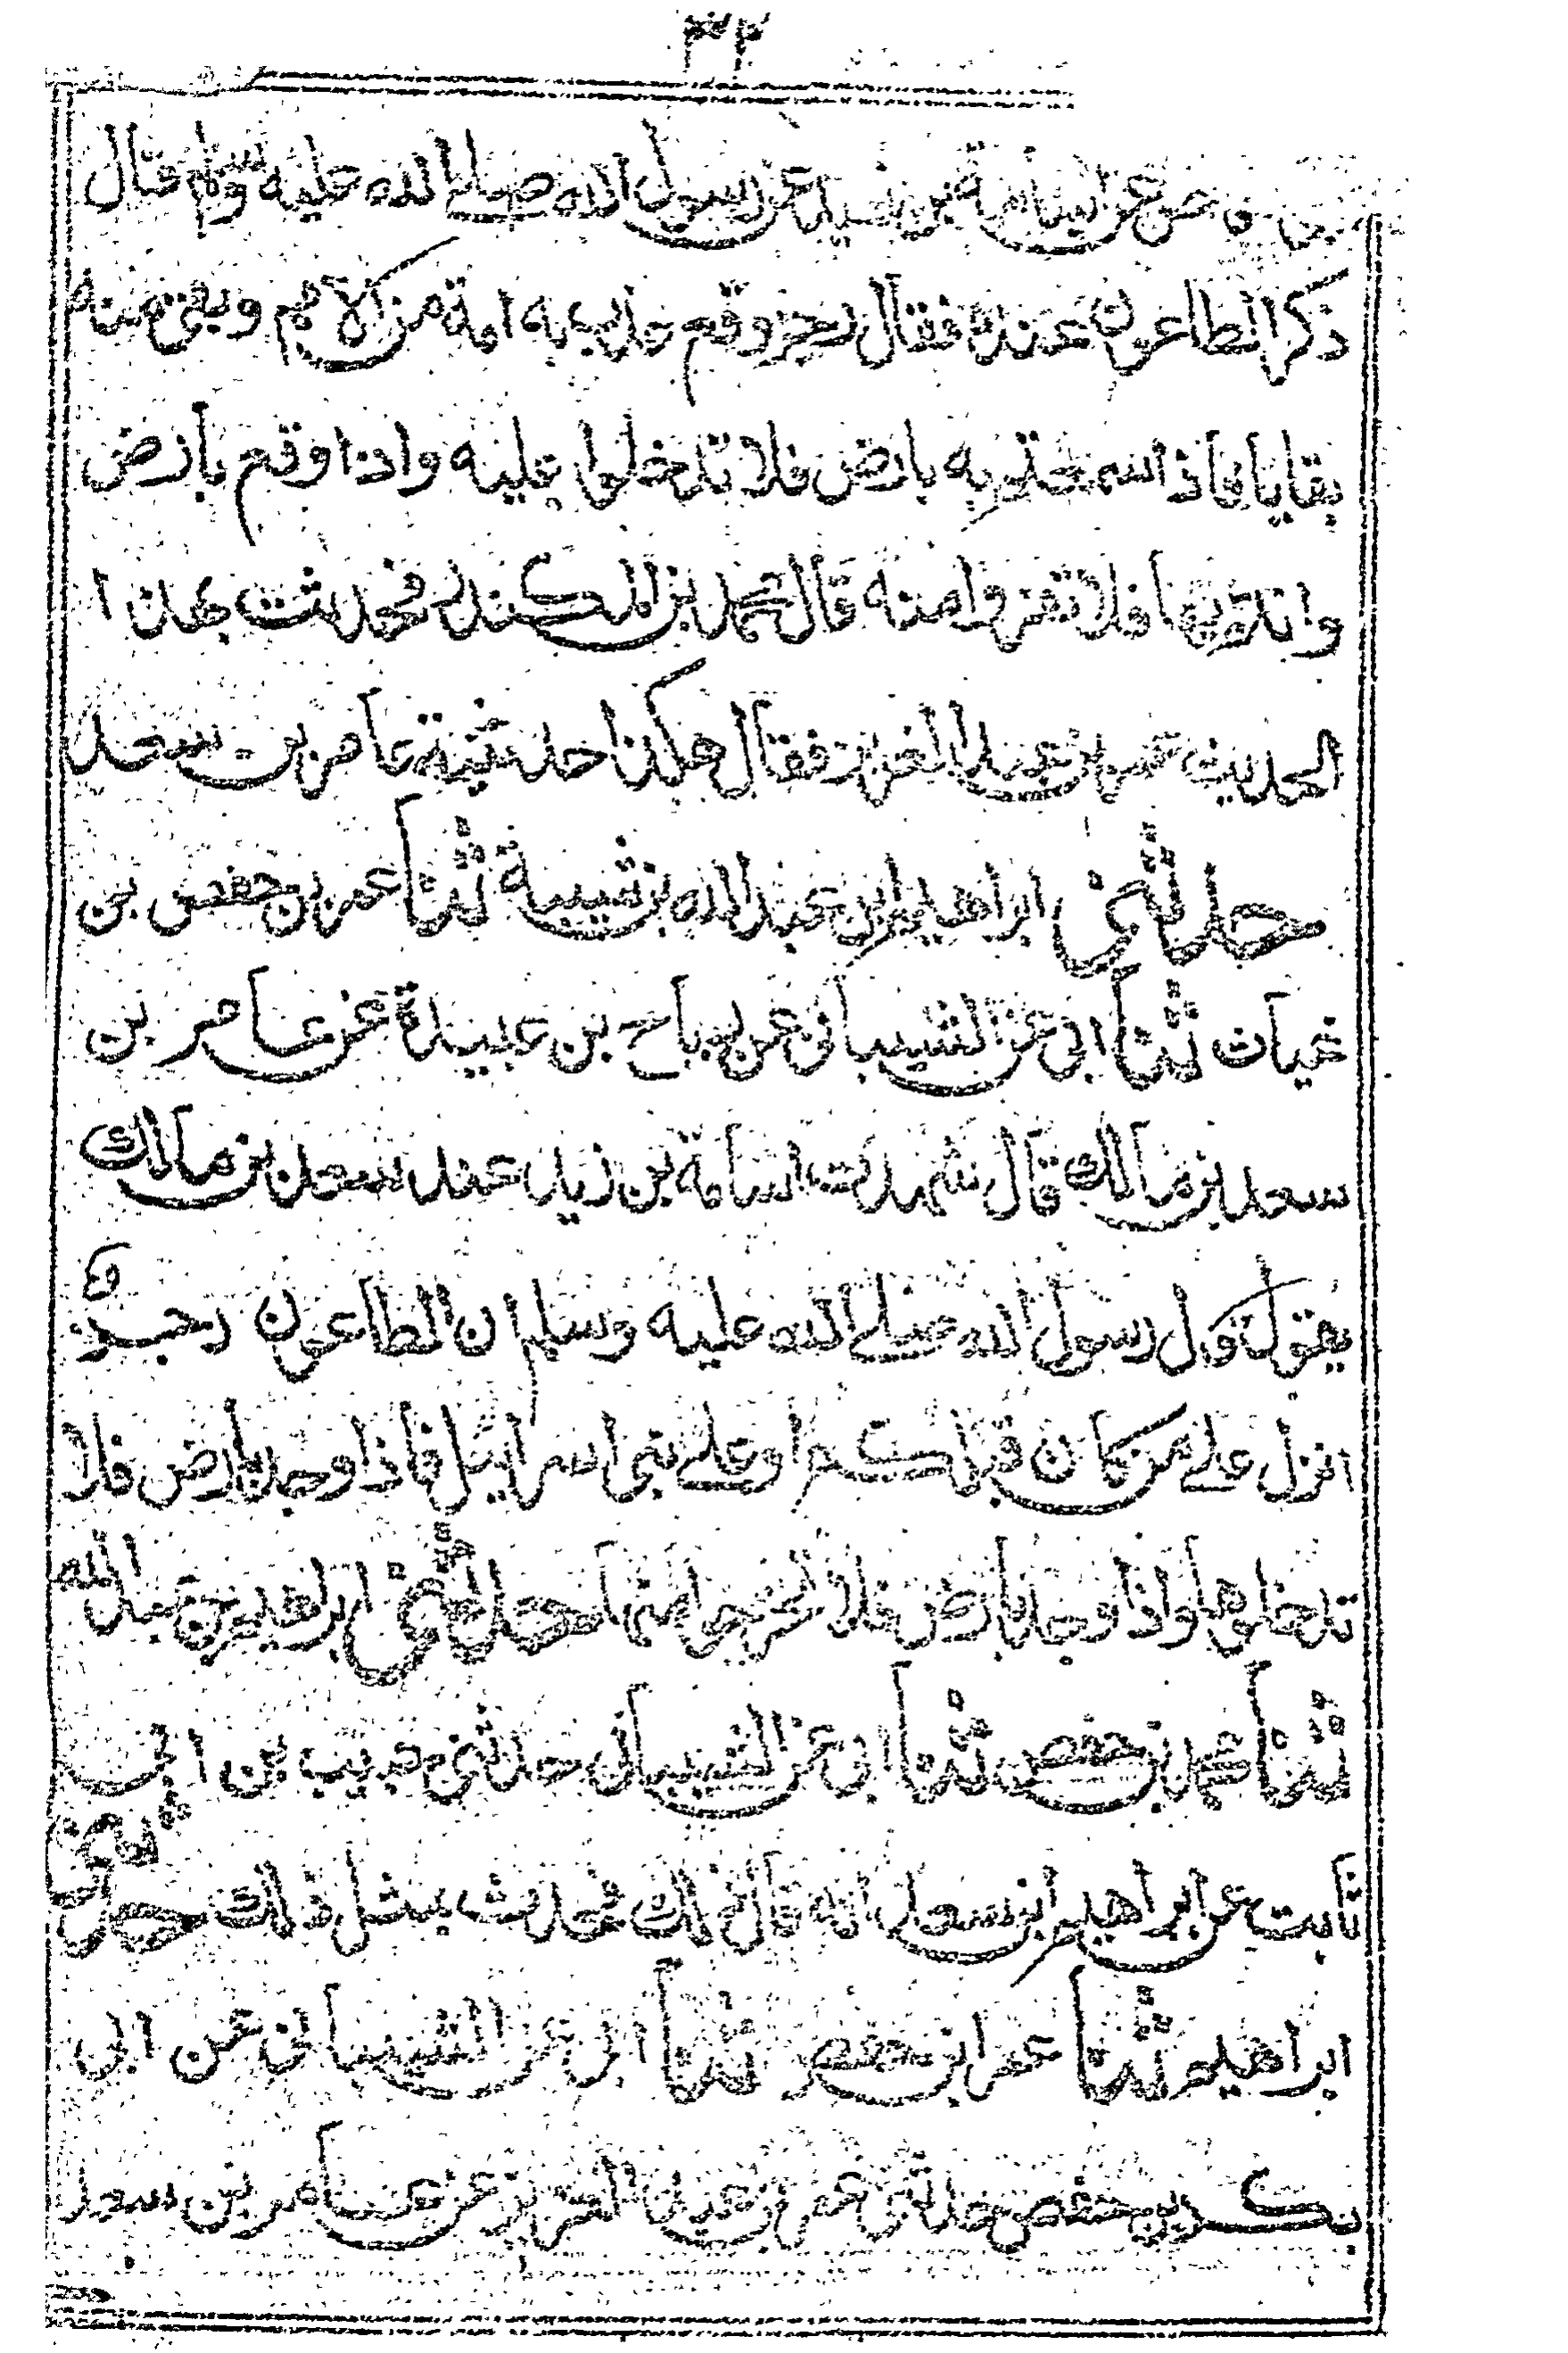 عن اسامة بن زيد عن رسول الله صلى الله عليه وسلم قال
ذكر الطاعون عنده فقال رجز وقع عذب به امة من الامم وبقي منه
بقايا فاذا سمعتم به بارض فلا تدخلوا عليه واذا وقع بأرض
وانتم بها فلا تفروا منه قال محمد بن المنكدر فحدثت بهذا
الحديث عمر بن عبد العزيز فقال هكذا حدثنيه عامر بن سعد
حدثني ابراهيم ابن عبد الله بن شيبة ثنا عمر بن حفص بن
غياث ثنا ابي عن الشيباني عن رباح بن عبيدة عن عامر بن
سعد بن مالك قال شهدت اسامة بن زيد عند سعد بن مالك
يقول قال رسول الله صلى الله عليه وسلم ان الطاعون رجز
انزل على من كان قبلكم او على بني اسرائيل فاذا وجد بأرض فلا
تدخلوها واذا وجد بأرض فلا تخرجوا منها حدثني ابراهيم بن عبد الله
ثنا محمد بن حفص ثنا ابي عن الشيباني حدثني حبيب بن ابي
ثابت عن ابراهيم ابن سعد انه قال ذلك فحدث بمثل ذلك حدثني
ابراهيم ثنا عمر ابن حفص ثنا ابي عن الشيباني عن ابي
بكر بن حفص حدثني عمر بن عبد العزيز عن عامر بن سعد